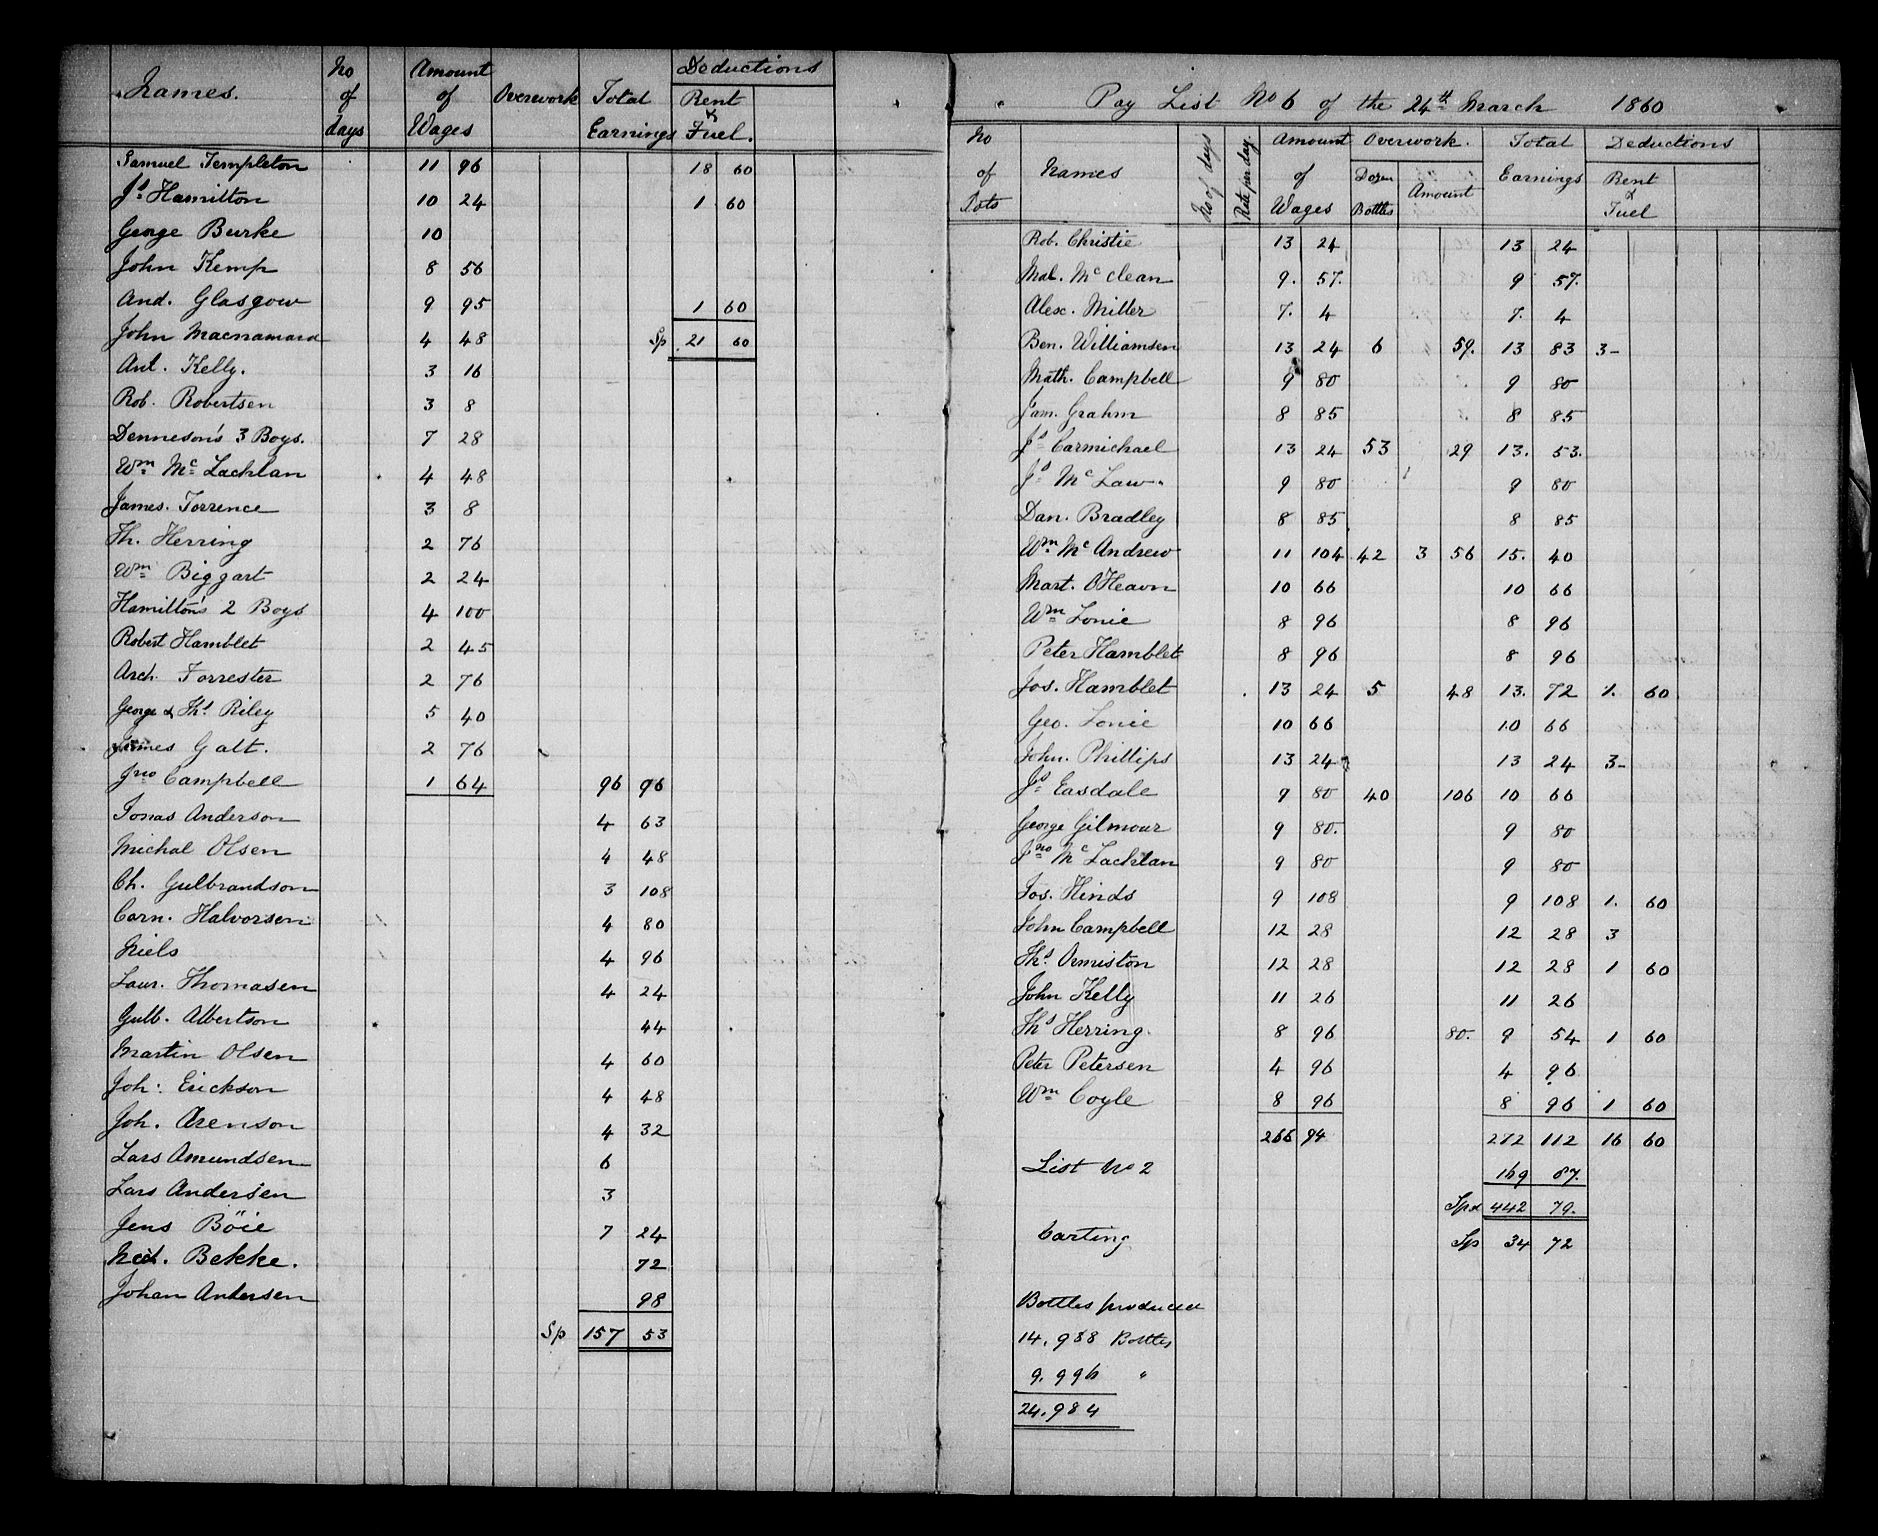 Names. No of days Amount of Wages Overwork Total Earnings Deductions Rent & Fuel.
Samuel Templeton 11 96 18 60
Js Hamilton 10 24 1 60
George Burke 10
John Kemp 8 56
And. Glasgow 9 95 1 60
John Macnamara 4 48 Sp 21 60
Ant. Kelly. 3 16
Rob. Robertsen 3 8
Denneson's 3 Boys. 7 28
Wm Mc Lachlan 4 48
James. Torrence 3 8
Th. Herring 2 76
Wm Biggart 2 24
Hamilton's 2 Boys 4 100
Robert Hamblet 2 45
Arch. Forrester 2 76
George & Ths Riley 5 40
James Galt. 2 76
Jno Campbell 1 64 96 96
Jonas Anderson 4 63
Michal Olsen 4 48
Ch. Gulbrandson 3 108
Corn. Halvorsen 4 80
Niels 4 96
Laur. Thomasen 4 24
Gulb. Albertson 44
Martin Olsen 4 60
Joh: Erickson 4 48
Joh. Arenson 4 32
Lars Amundsen 6
Lars Andersen 3
Jens Böie 7 24
Bekke. 72
Johan Andersen 98
Sp 157 53
Pay List No 6 of the 24th March 1860
No of Pots Names No of days Rate per day. Amount of Wages Overwork. Dozen Bottles Amount Total Earnings Deductions Rent & Fuel
Rob. Christie 13 24 13 24
Mal. Mc clean 9. 57. 9 57.
Alex. Miller 7. 4 7. 4
Ben. Williamsen 13 24 6 59. 13 83 3-
Math. Campbell 9 80 9 80
Jam. Grahm 8 85 8 85
Js Carmichael 13 24 53 29 13. 53.
Js Mc Law. 9 80 9 80
Dan. Bradley 8 85 8 85
Wm Mc Andrew 11 104 42 3 56 15. 40
Mart. O'Heavn 10 66 10 66
Wm Lonie 8 96 8 96
Peter Hamblet 8 96 8 96
Jos. Hamblet 13 24 5 48 13. 72 1. 60
Geo. Lonie 10 66 10 66
John. Phillips 13 24 13 24 3-
Js Easdale 9 80 40 106 10 66
George Gilmour 9 80. 9 80
Jno Mc Lachlan 9 80 9 80
Jos. Hinds 9 108 9 108 1. 60
John Campbell 12 28 12 28 3
Ths Ormiston 12 28 12 28 1 60
John Kelly 11 26 11 26
Ths Herring. 8 96 80. 9 54 1 60
Peter Petersen 4 96 4 96
Wm Coyle 8 96 8 96 1 60
266 94 272 112 16 60
List No 2 169 87.
Spd 442 79.
Carting Sp 34 72
Bottles produced
14.988 Bottles
9.996 "
24.984